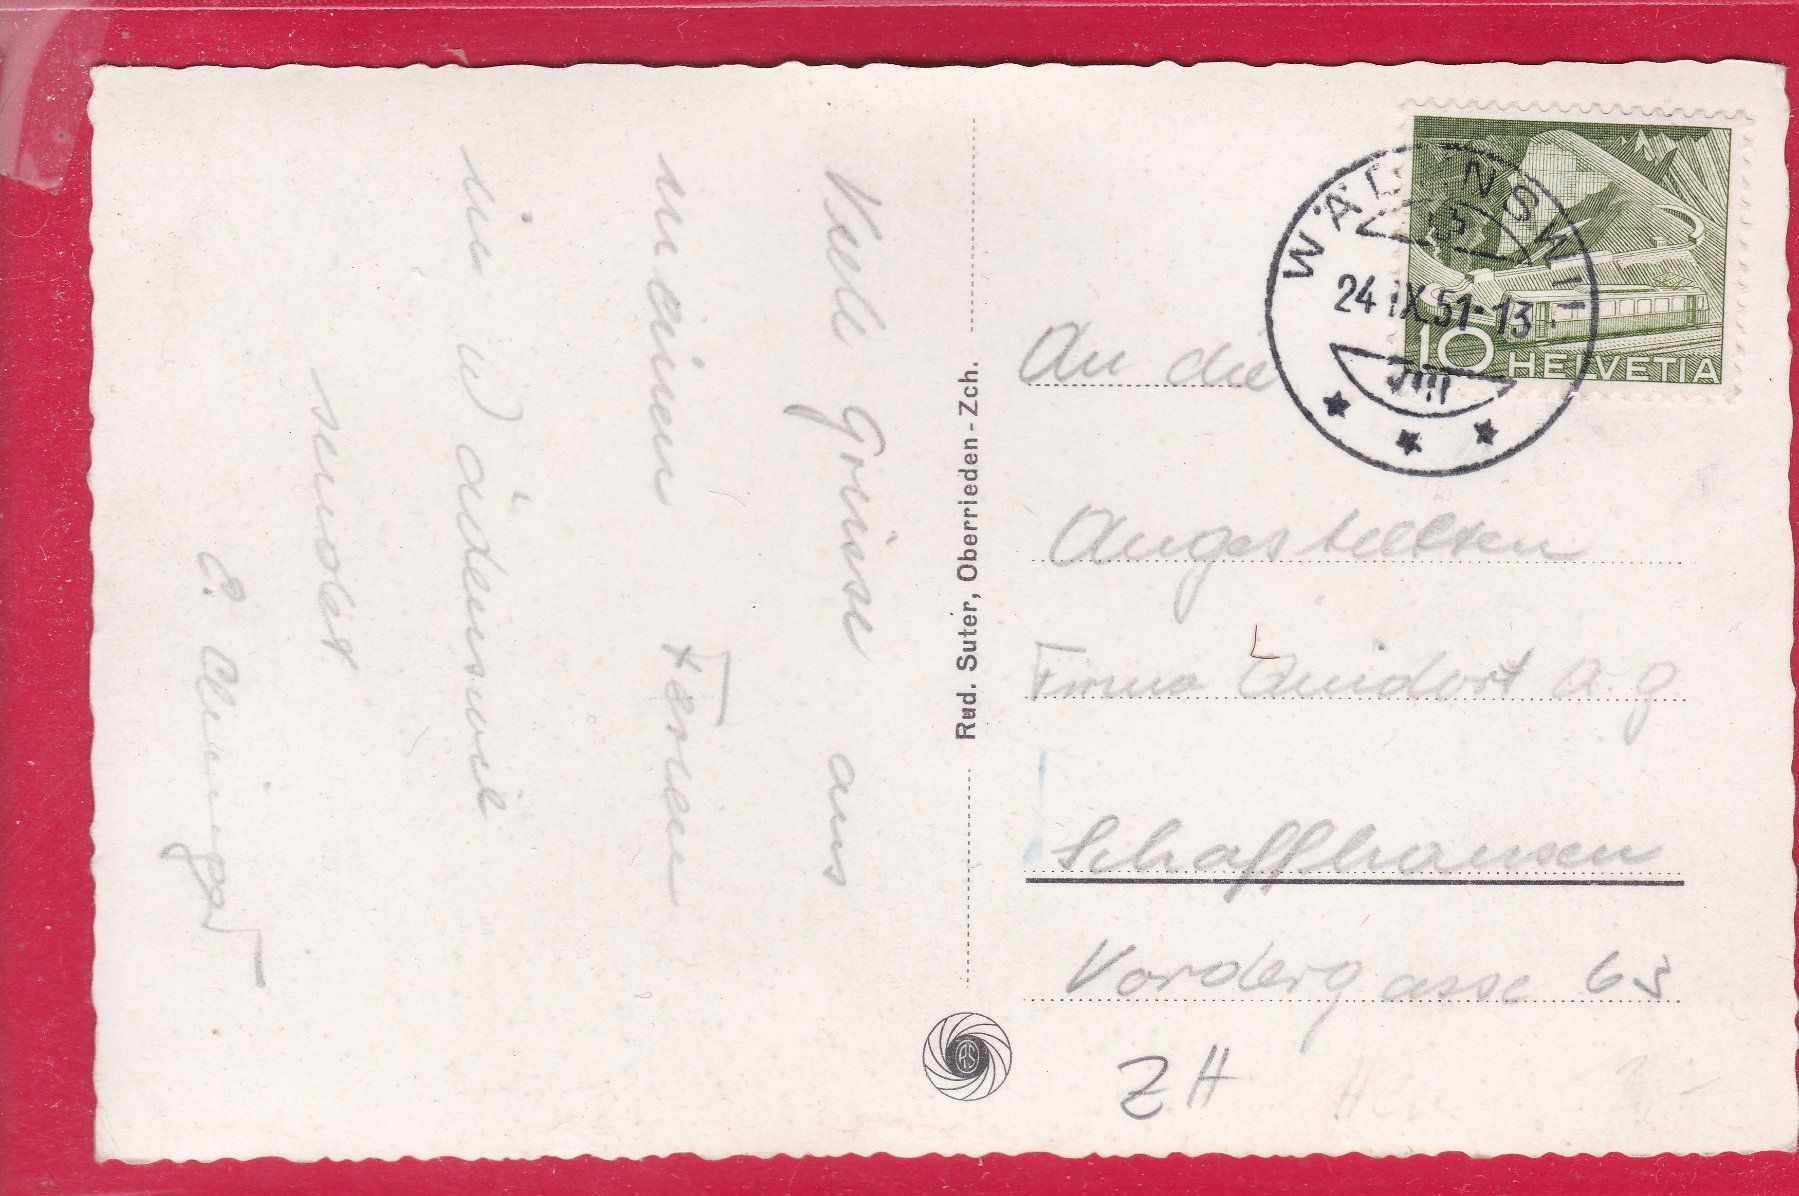 Viele Grüsse aus
meinen Ferien
in Wädenswil
sendet
E.
Rud. Suter, Oberrieden-Zch.
RS
WÄDENSWIL
24.IX.51-13
10 HELVETIA
An die
Angestellten
Firma A.G
Schaffhausen
Vordergasse 63
ZH